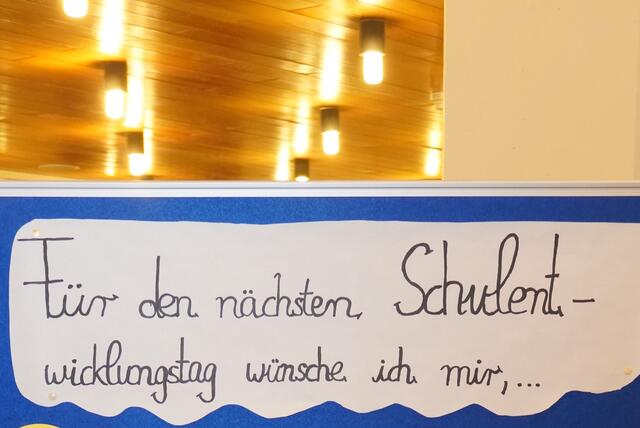 Für den nächsten Schulent-
wicklungstag wünsche ich mir,...